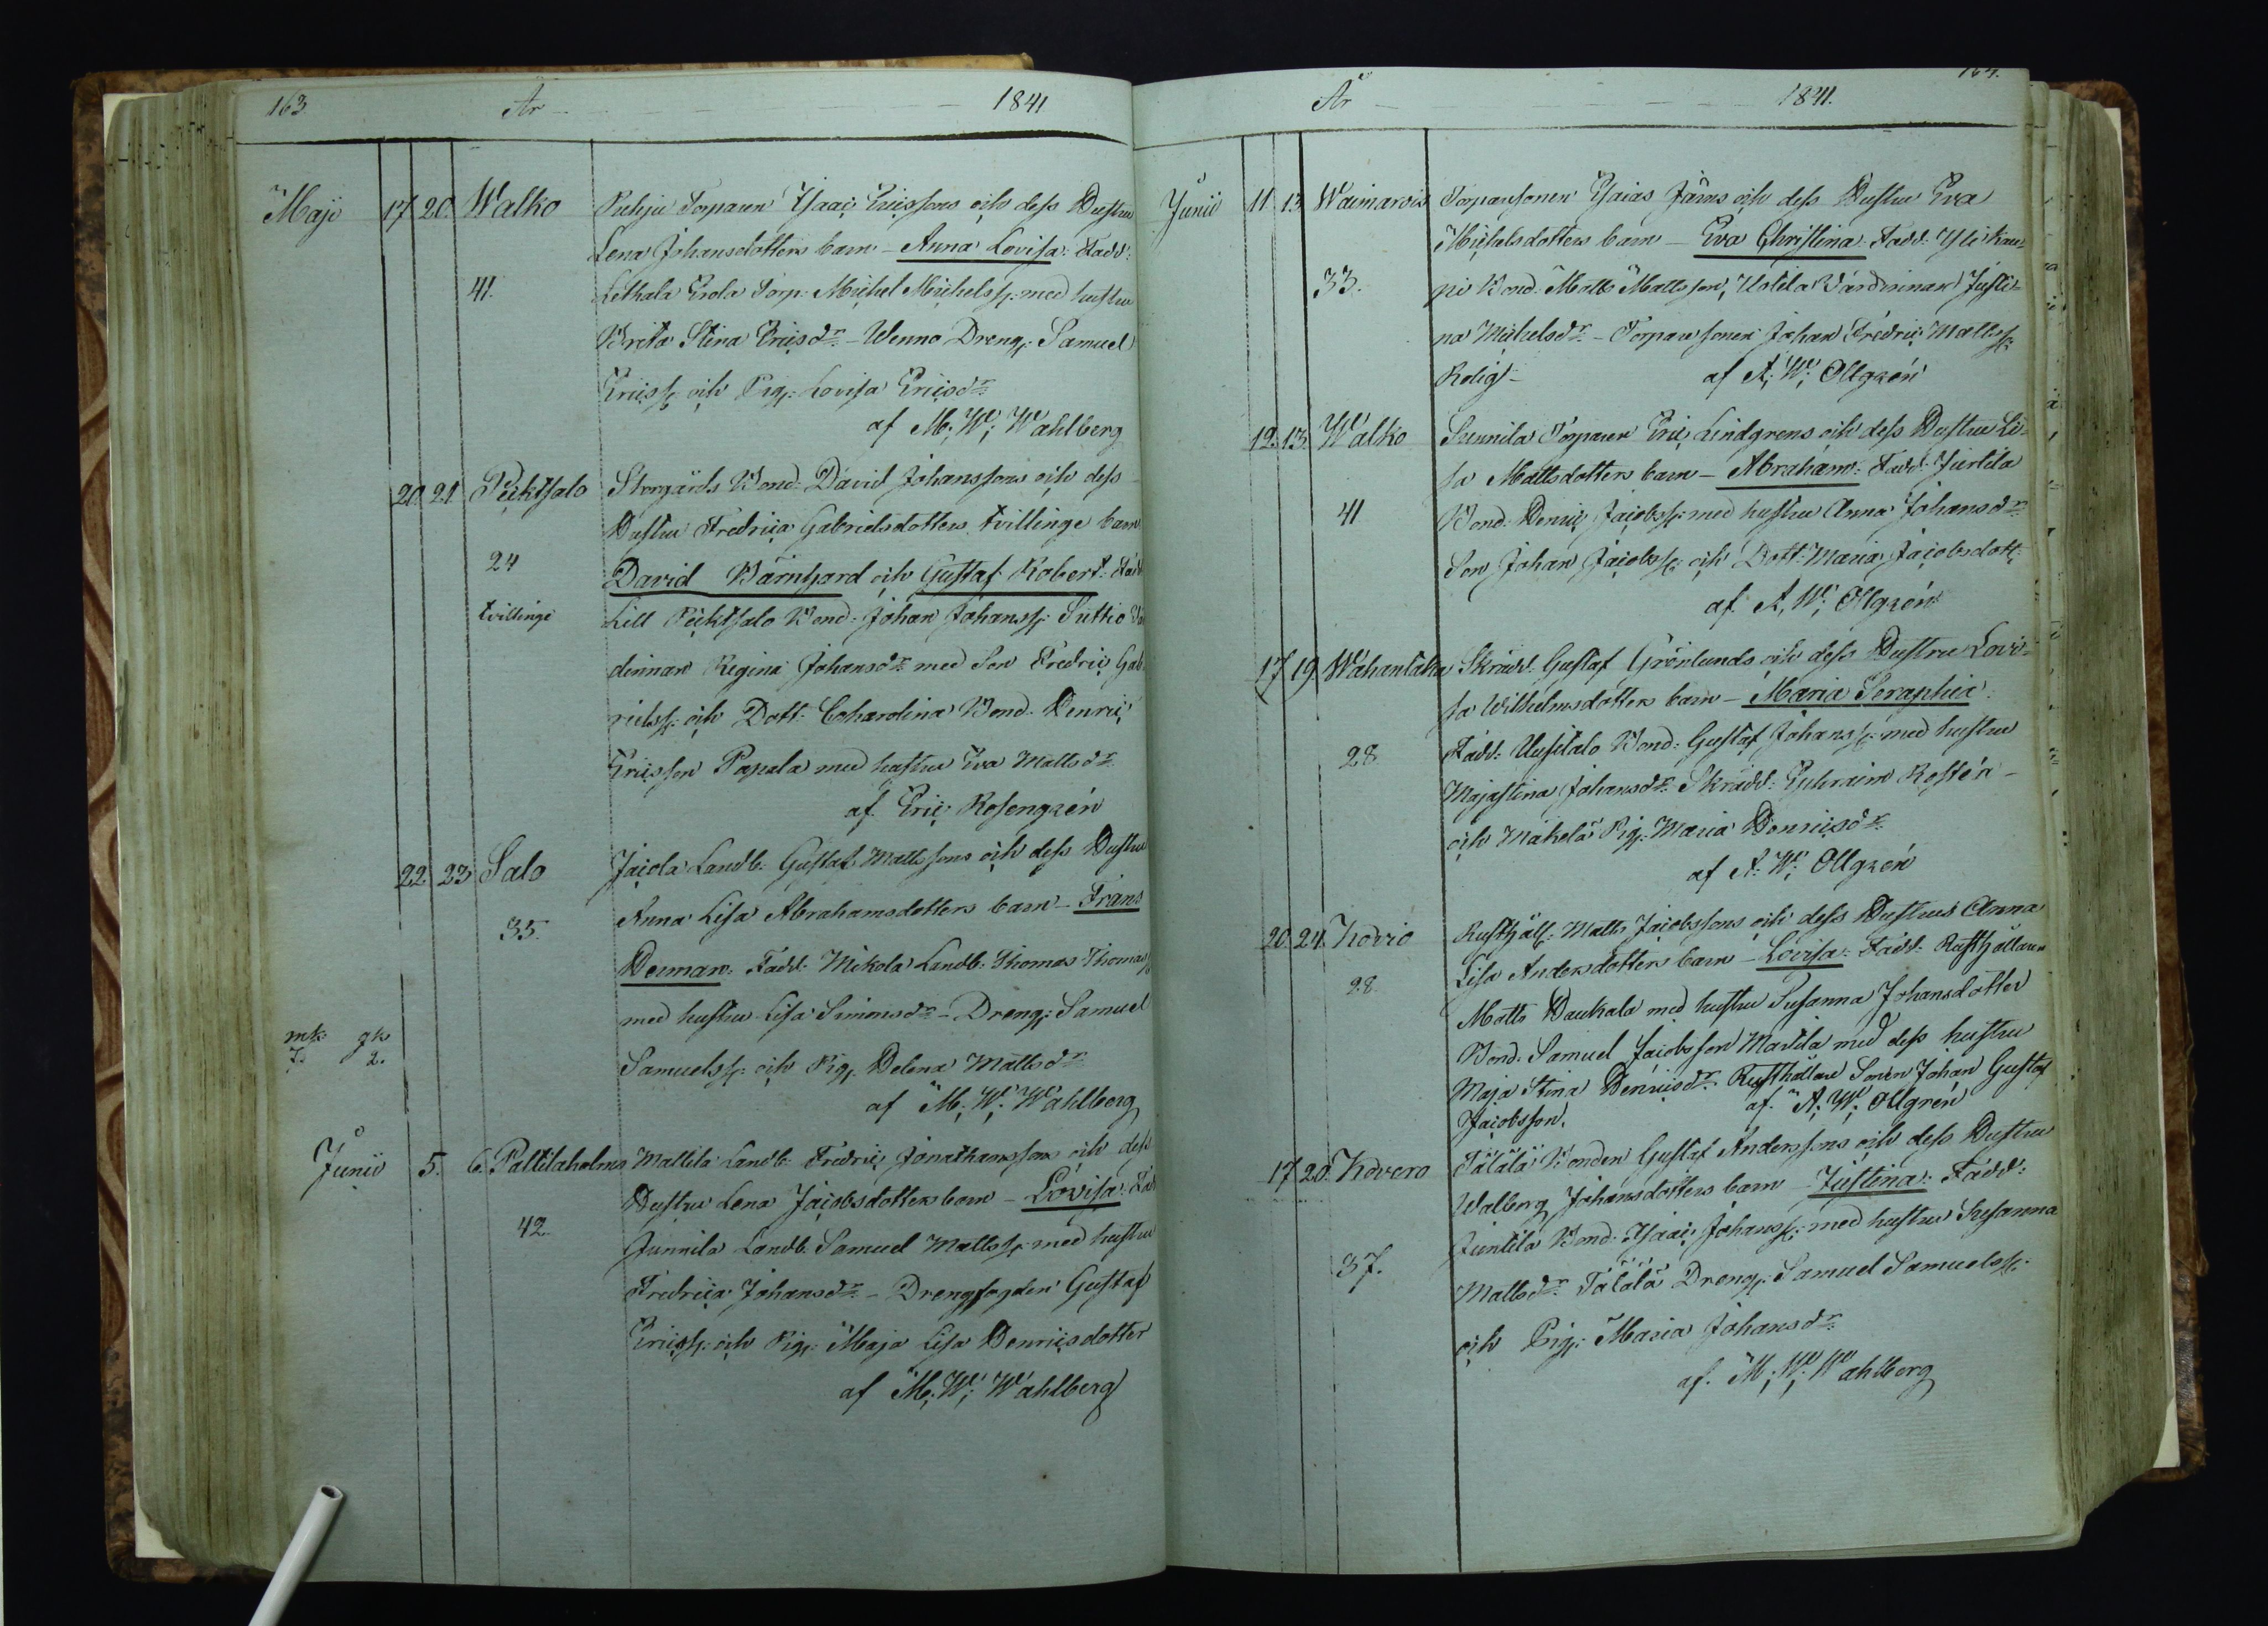 163. År 1841
Maji 17 20. Walko Torparen Isaac Ericssons och dess Hustru
Lena Johansdotters barn - Anna Lovisa: Fadd:
41. Lethala Erola Torp: Michel Michelss: med hustru
Brita Stina Ericsdr - Wenno Dreng: Samuel
Ericss: och Pig: Lovisa Ericsdr
af M: W: Wahlberg
20 21 Piektsalo Storgårds Bond: David Johanssons och dess
Hustru Fredrica Gabrielsdotters tvillinge barn
24 David Bärnhard och Gustaf Robert: Fadd
tvillinge Lill Piektsalo Bond: Johan Johanss: Suttio
dinnan Regina Johansdr med Son Fredric Gab
rielss: och Dott: Carolina Bond: Henric
Ericsson Papala med hustru Eva Mattsdr
af Eric Rosengrén
22 23 Salo Jacola Landb: Gustaf Mattssons och dess Hustru
35. Anna Lisa Abrahamsdotters barn - Frans
Herman: Fadd: Mikola Landb: Thomas Thomass
med hustru Lisa Simonsdr - Dreng: Samuel
mk qk
7. 2.
Samuelss: och Pig: Helena Mattsdr
af M: W: Wahlberg
Junii 5. 6. Paltilaholma Mattila Landb: Fredric Jonathanssons och dess
Hustru Lena Jacobsdotters barn - Lovisa: Fad
42. Junnila Landb: Samuel Mattss: med hustru
Fredrica Johansdr - Drengfogden Gustaf
Ericss: och Pig: Maja Lisa Henricsdotter
af M: W: Wahlberg
164.
År 1841.
Junii 11 13 Waimarois Torparsonen Esaias Järns och dess Hustru Eva
Michalsdotters barn - Eva Christina: Fadd: Yli Kau-
33. pi Bond: Matts Mattsson, Uotila Värdinnan Justi-
na Michelsdr - Torparsonen Johan Fredric Mattss:
Rolig - af A: W: Ollgrén
12 13 Walko Sunnila Torparen Eric Lindgrens och dess Hustru Li-
sa Mattsdotters barn - Abraham: Fadd: Juttila
41 Bond: Henric Jacobss: med hustru Anna Johansdr
Son Johan Jacobss: och Dott: Maria Jacobsdott:
af A: W: Ollgrén
17 19 Wähäntaka Skrädd: Gustaf Grönlunds och dess Hustru Lovi-
sa Wilhelmsdotters barn - Maria Seraphia:
28 Fadd: Uusitalo Bond: Gustaf Johanss: med hustru
Majastina Johansdr Skrädd: Ephraim Rostén -
och Mäkelä Pig: Maria Henricsdr
af A: W: Ollgrén
20 24 Kovio Rusthåll: Matts Jacobssons och dess Hustrus Anna
28 Lisa Andersdotters barn - Lovisa: Fadd: Rusthållaren
Matts Haukala med hustru Susanna Johansdotter
Bond: Samuel Jacobsson Mattila med dess hustru
Maja Stina Henricsdr Rusthållare Sonen Johan Gustaf
Jacobsson. af A: W: Ollgrén
17 20 Kovero Tälälä Bonden Gustaf Anderssons och dess Hustru
Walberg Johansdotters barn - Justina: Fadd:
37. Juntila Bond: Isaac Johanss: med hustru Susanna
Mattsdr Tälälä Dreng: Samuel Samuelss:
och Pig: Maria Johansdr
af M: W: Wahlberg